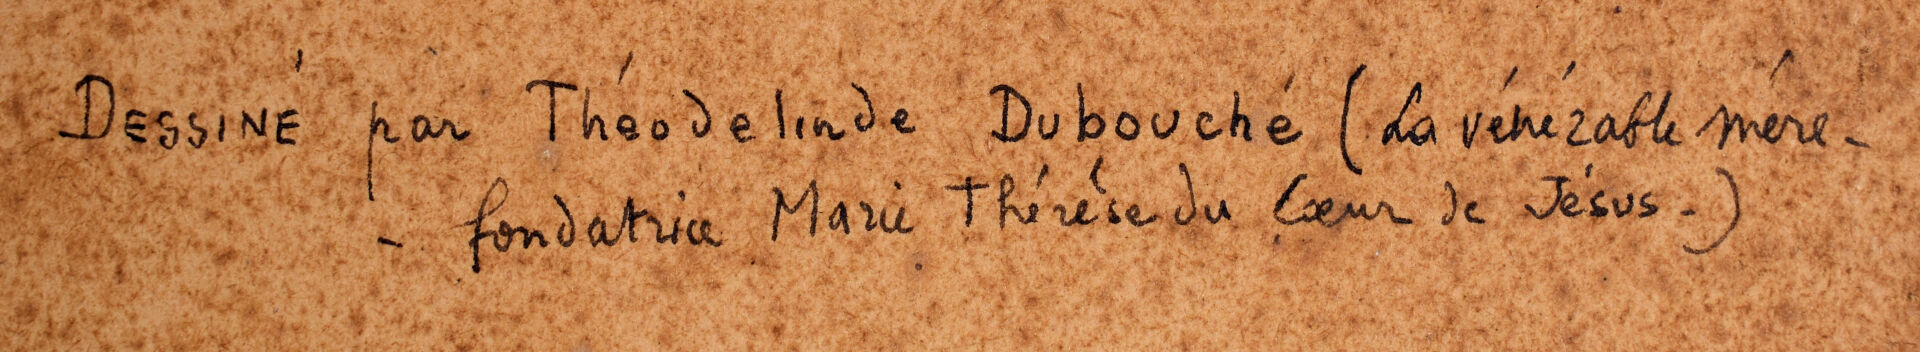 DESSINÉ par Théodelinde Dubouché (La vénérable mére-
- fondatrice Marie Thérèse du Cœur de Jésus-)